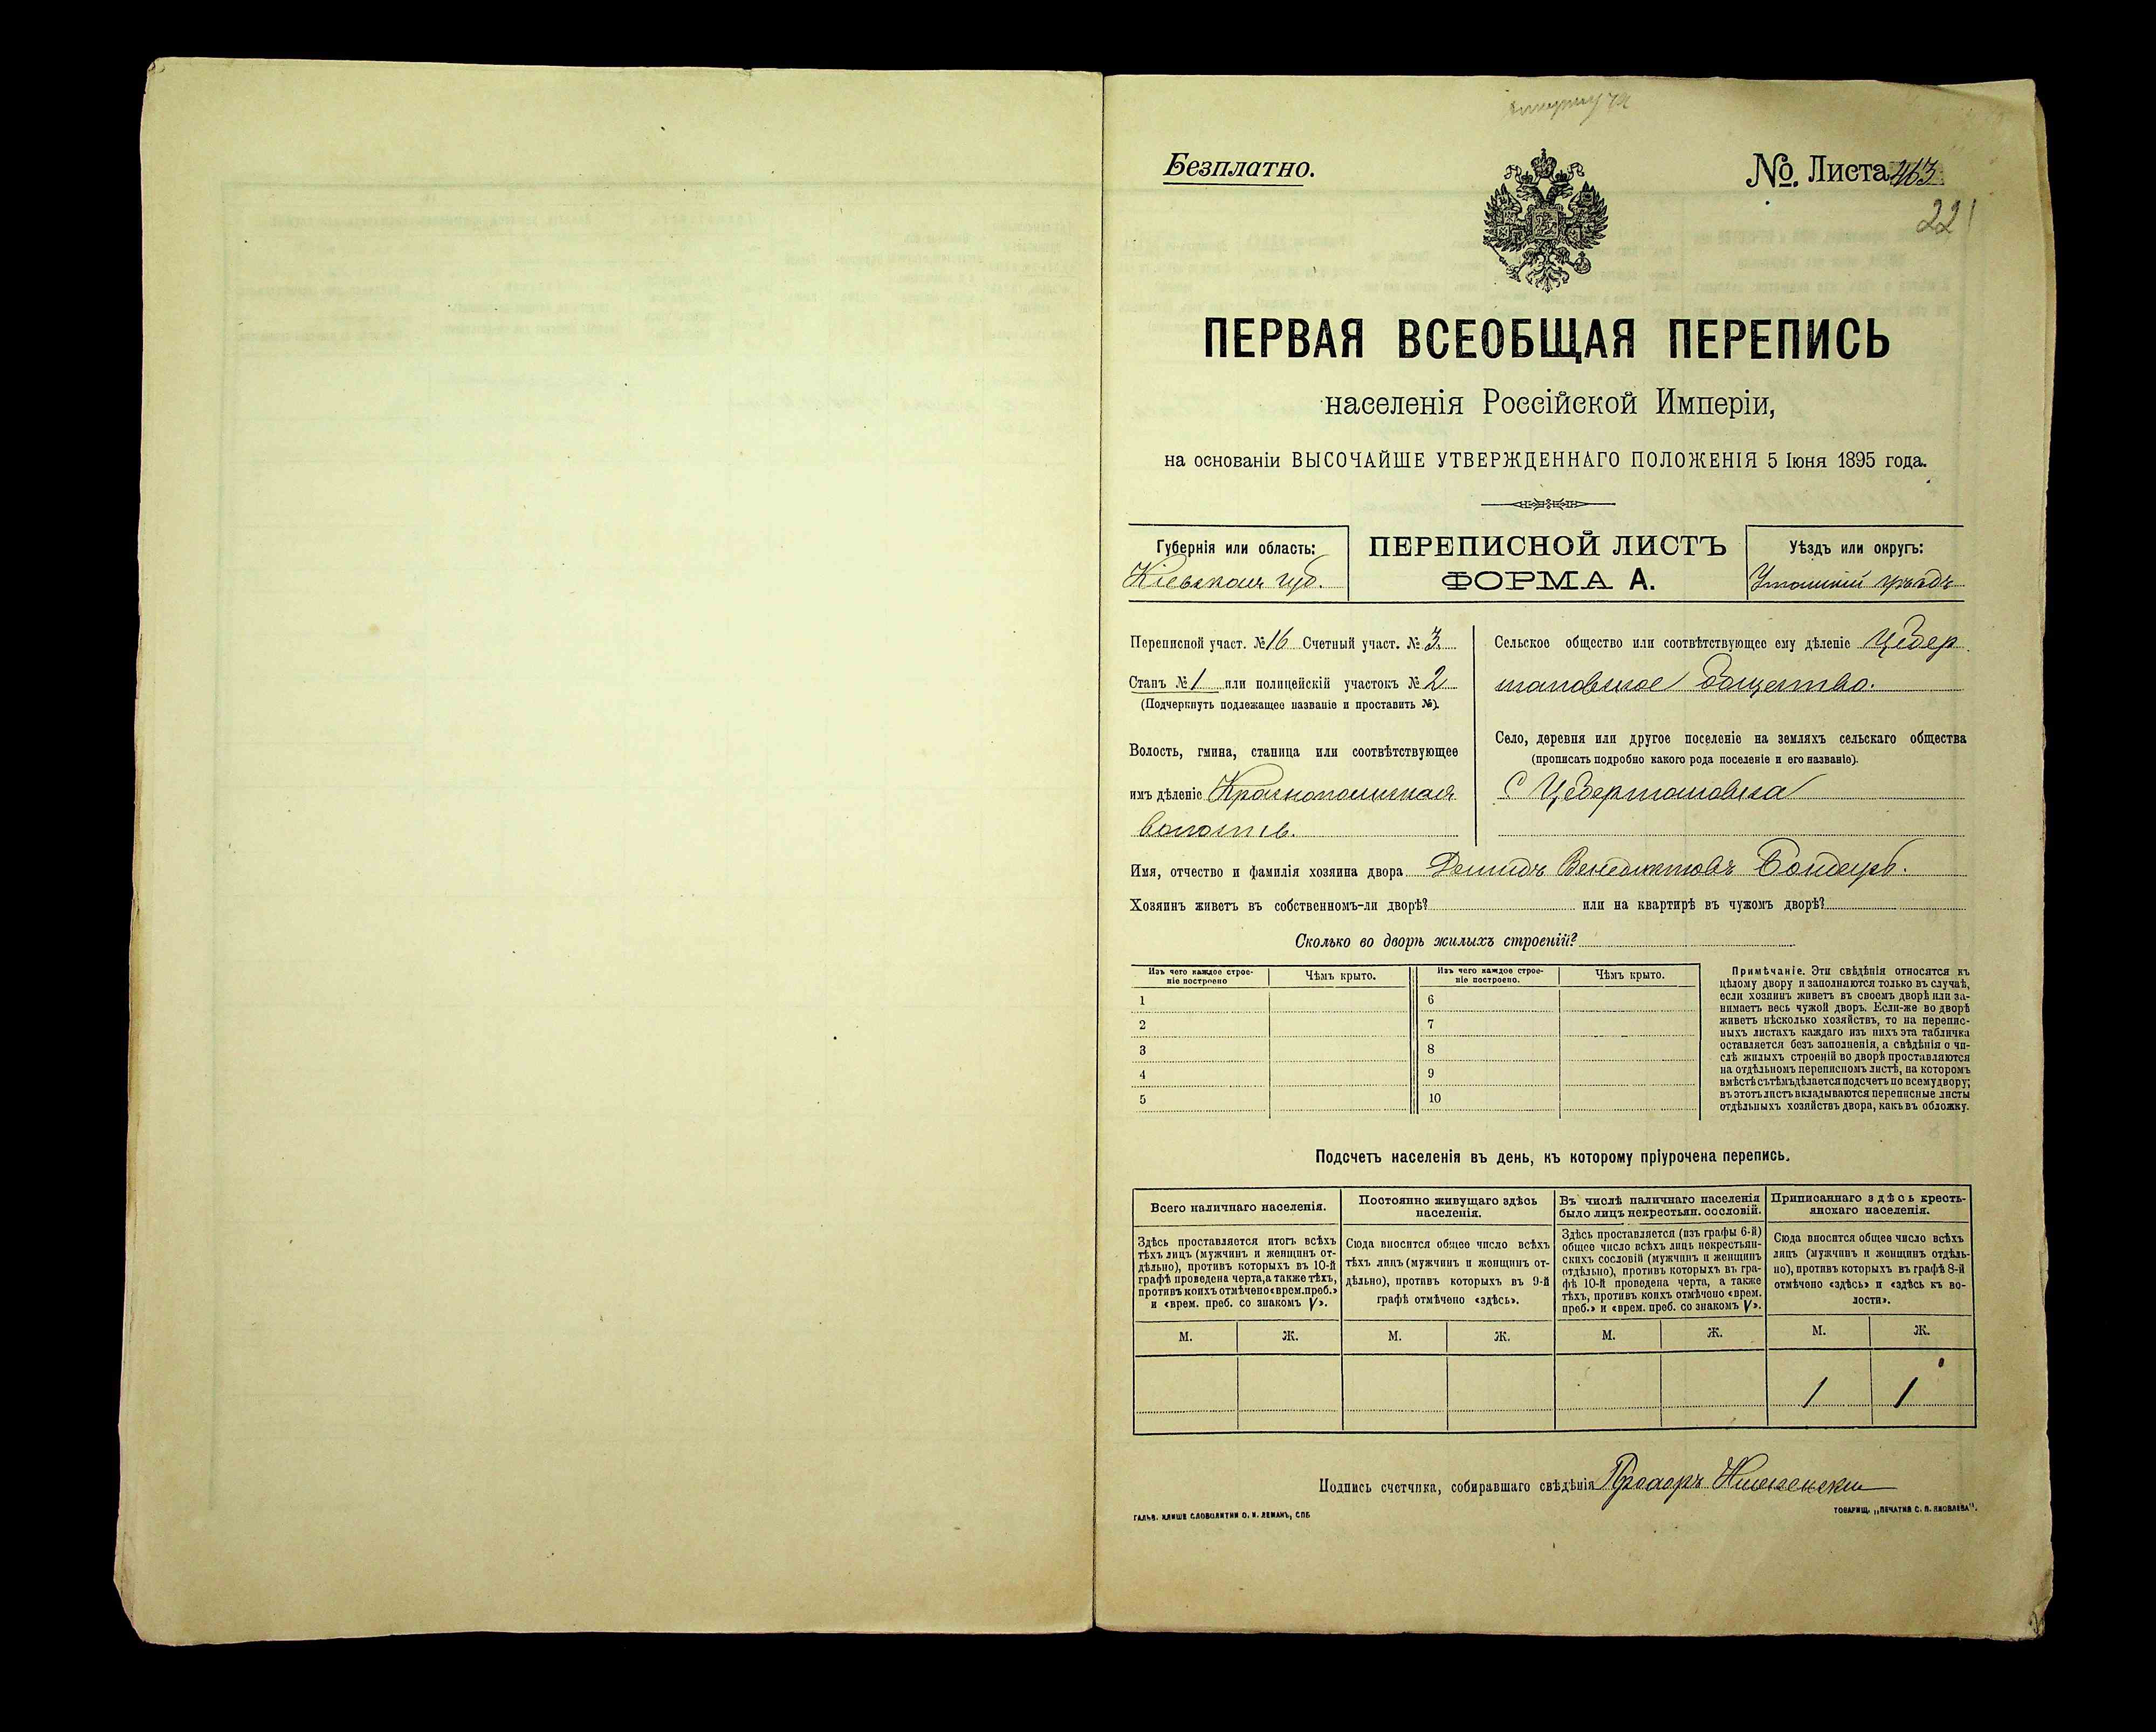 Безплатно.
№. Листа 463
221
ПЕРВАЯ ВСЕОБЩАЯ ПЕРЕПИСЬ
населенія Россійской Имперіи,
на основаніи ВЫСОЧАЙШЕ УТВЕРЖДЕННАГО ПОЛОЖЕНІЯ 5 Іюня 1895 года.
Губернія или область:
Кіевская губ.
ПЕРЕПИСНОЙ ЛИСТЪ
ФОРМА А.
Уѣздъ или округъ:
Уманскій уѣздъ
Переписной участ. № 16 Счетный участ. № 3.
Станъ № 1 или полицейскій участокъ № 2
(Подчеркнуть подлежащее названіе и проставить №).
Волость, гмина, станица или соотвѣтствующее
имъ дѣленіе Краснопольская
волость.
Сельское общество или соотвѣтствующее ему дѣленіе Цебер
мановское общество.
Село, деревня или другое поселеніе на земляхъ сельскаго общества
(прописать подробно какого рода поселеніе и его названіе).
С Цебермановка
Имя, отчество и фамилія хозяина двора Демидъ Венедиктовъ Бондарь.
Хозяинъ живетъ въ собственномъ-ли дворѣ? или на квартирѣ въ чужомъ дворѣ?
Сколько во дворѣ жилыхъ строеній?
Изъ чего каждое строе-
ніе построено
Чѣмъ крыто.
Изъ чего каждое строе-
ніе построено.
Чѣмъ крыто.
1 6
2 7
3 8
4 9
5 10
Примѣчаніе. Эти свѣдѣнія относятся къ
цѣлому двору и заполняются только въ случаѣ,
если хозяинъ живетъ въ своемъ дворѣ или за-
нимаетъ весь чужой дворъ. Если-же во дворѣ
живетъ нѣсколько хозяйствъ, то на перепис-
ныхъ листахъ каждаго изъ нихъ эта табличка
оставляется безъ заполненія, а свѣдѣнія о чи-
слѣ жилыхъ строеній во дворѣ проставляются
на отдѣльномъ переписномъ листѣ, на которомъ
вмѣстѣ съ тѣмъ дѣлается подсчетъ по всему двору;
въ этотъ листъ вкладываются переписные листы
отдѣльныхъ хозяйствъ двора, какъ въ обложку.
Подсчетъ населенія въ день, къ которому пріурочена перепись.
Всего наличнаго населенія.
Здѣсь проставляется итогъ всѣхъ
тѣхъ лицъ (мужчинъ и женщинъ от-
дѣльно), противъ которыхъ въ 10-й
графѣ проведена черта, а также тѣхъ,
противъ коихъ отмѣчено «врем. преб.»
и «врем. преб. со знакомъ V».
Постоянно живущаго здѣсь
населенія.
Сюда вносится общее число всѣхъ
тѣхъ лицъ (мужчинъ и женщинъ от-
дѣльно), противъ которыхъ въ 9-й
графѣ отмѣчено «здѣсь».
Въ числѣ наличнаго населенія
было лицъ некрестьян. сословій.
Здѣсь проставляется (изъ графы 6-й)
общее число всѣхъ лицъ некрестьян-
скихъ сословій (мужчинъ и женщинъ
отдѣльно), противъ которыхъ въ гра-
фѣ 10-й проведена черта, а также
тѣхъ, противъ коихъ отмѣчено «врем.
преб.» и «врем. преб. со знакомъ V».
Приписаннаго здѣсь кресть-
янскаго населенія.
Сюда вносится общее число всѣхъ
лицъ (мужчинъ и женщинъ отдѣль-
но), противъ которыхъ въ графѣ 8-й
отмѣчено «здѣсь» и «здѣсь къ во-
лости».
М. Ж. М. Ж. М. Ж. М. Ж.
1 1
Подпись счетчика, собиравшаго свѣдѣнія Прохоръ
ГАЛЬВ. КЛИШЕ СЛОВОЛИТНИ О. И. ЛЕМАНЪ, СПБ
ТОВАРИЩ. „ПЕЧАТНЯ С. П. ЯКОВЛЕВА“.